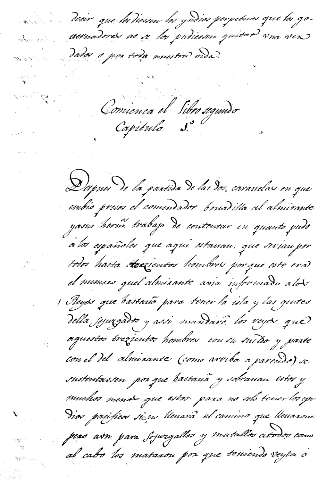 dezir que les diesen los yndios perpetuos que los go-
uernadores no se los pudiesen quitar una vez
dados o por toda nuestra vida.
Comienca el libro segundo
Capitulo 1.º
Despues de la partida de las dos caravelas en que
embio presos el comendador bouadilla al almirante
y a sus herm.s trabajo de contentar en quanto pudo
a los españoles que aqui estauan, que serian por
todos hasta trezientos hombres porque este era
el numero quel almirante avia informado a los
Reyes que bastaria para tener la isla y las gentes
della sojuzgados y assi mandarā los reyes que
aquestos trezientos hombres con su sueldo y parte
con el del almirante (como arriba a parecido) se
sustentassen porque bastauā y sobrauan estos y
muchos menos que estos para no solo tener los yn-
dios pacificos si se lleuara el camino que lleuaron
pero aun para sojuzgallos y matallos a todos como
al cabo los mataron por que teniendo veynte o